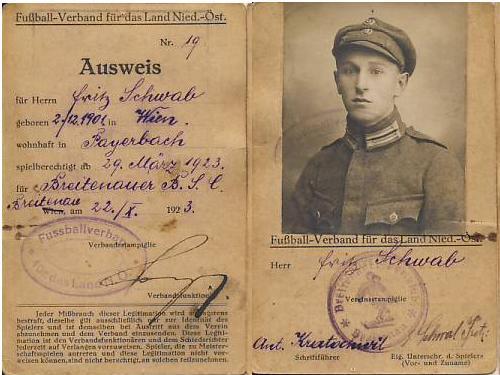 Fußball-Verband für das Land Nied.-Öst.
Nr. 19
Ausweis
für Herrn Fritz Schwab
geboren 2./12.1901 in Wien.
wohnhaft in Payerbach
spielberechtigt ab 29. März 1923.
für Breitenauer B.S.C.
Breitenau
Wien, am 22./X. 1923.
Fussballverband
für das Land N.Ö.
Verbandsstampiglie
Verbandsfunktionär
Jeder Mißbrauch dieser Legitimation wird strengstens
bestraft, dieselbe gilt ausschließlich nur zur Identität des
Spielers und ist demselben bei Austritt aus dem Verein
abzunehmen und dem Verband einzusenden. Diese Legiti-
mation ist den Verbandsfunktionären und dem Schiedsrichter
jederzeit auf Verlangen vorzuweisen. Spieler, die zu Meister-
schaftsspielen antreten und diese Legitimation nicht vor-
weisen können, sind nicht berechtigt, an solchen teilzunehmen.
Fußball-Verband für das Land Nied.-Öst.
Herr Fritz Schwab
Vereinsstampiglie
Ant.
Schriftführer
Eig. Unterschr. d. Spielers
(Vor- und Zuname)